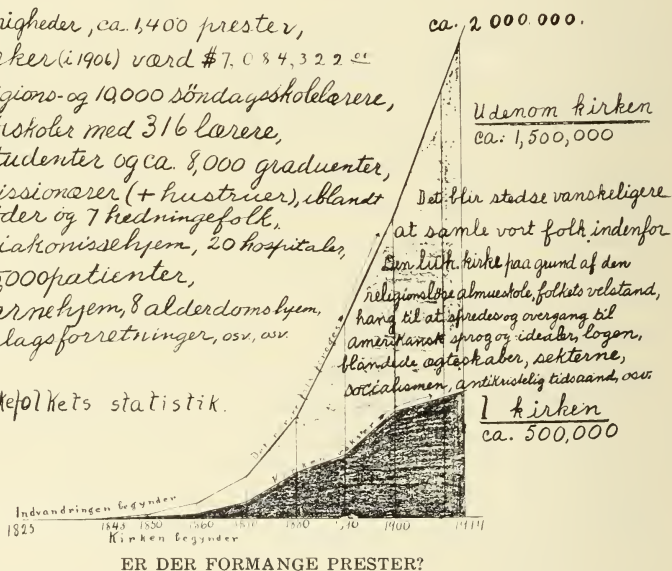 nigheder, ca. 1,400 prester,
rker (i 1906) værd $7,084,322 00
gions- og 10,000 söndagsskolelærere,
skoler med 316 lærere,
tudenter og ca. 8,000 graduenter,
issionærer (+ hustruer), iblandt
der og 7 hedningefolk,
iakonissehjem, 20 hospitaler,
,000 patienter,
ernehjem, 8 alderdomshjem,
lagsforretninger, osv, osv.
kefolkets statistik.
ca. 2 000 000.
Udenom kirken
ca. 1,500,000
Det blir stedse vanskeligere
at samle vort folk indenfor
Den luth. kirke paa grund af den
religionslöse almueskole, folkets velstand,
hang til at spredes og overgang til
amerikansk sprog og idealer, logen,
blandede ægteskaber, sekterne,
socialismen, antikristelig tidsaand, osv.
I kirken
ca. 500,000
Det norske folk
Indvandringen begynder
1825 1843 1850 1860 1870 1880 1890 1900 1914
Kirken begynder
ER DER FORMANGE PRESTER?